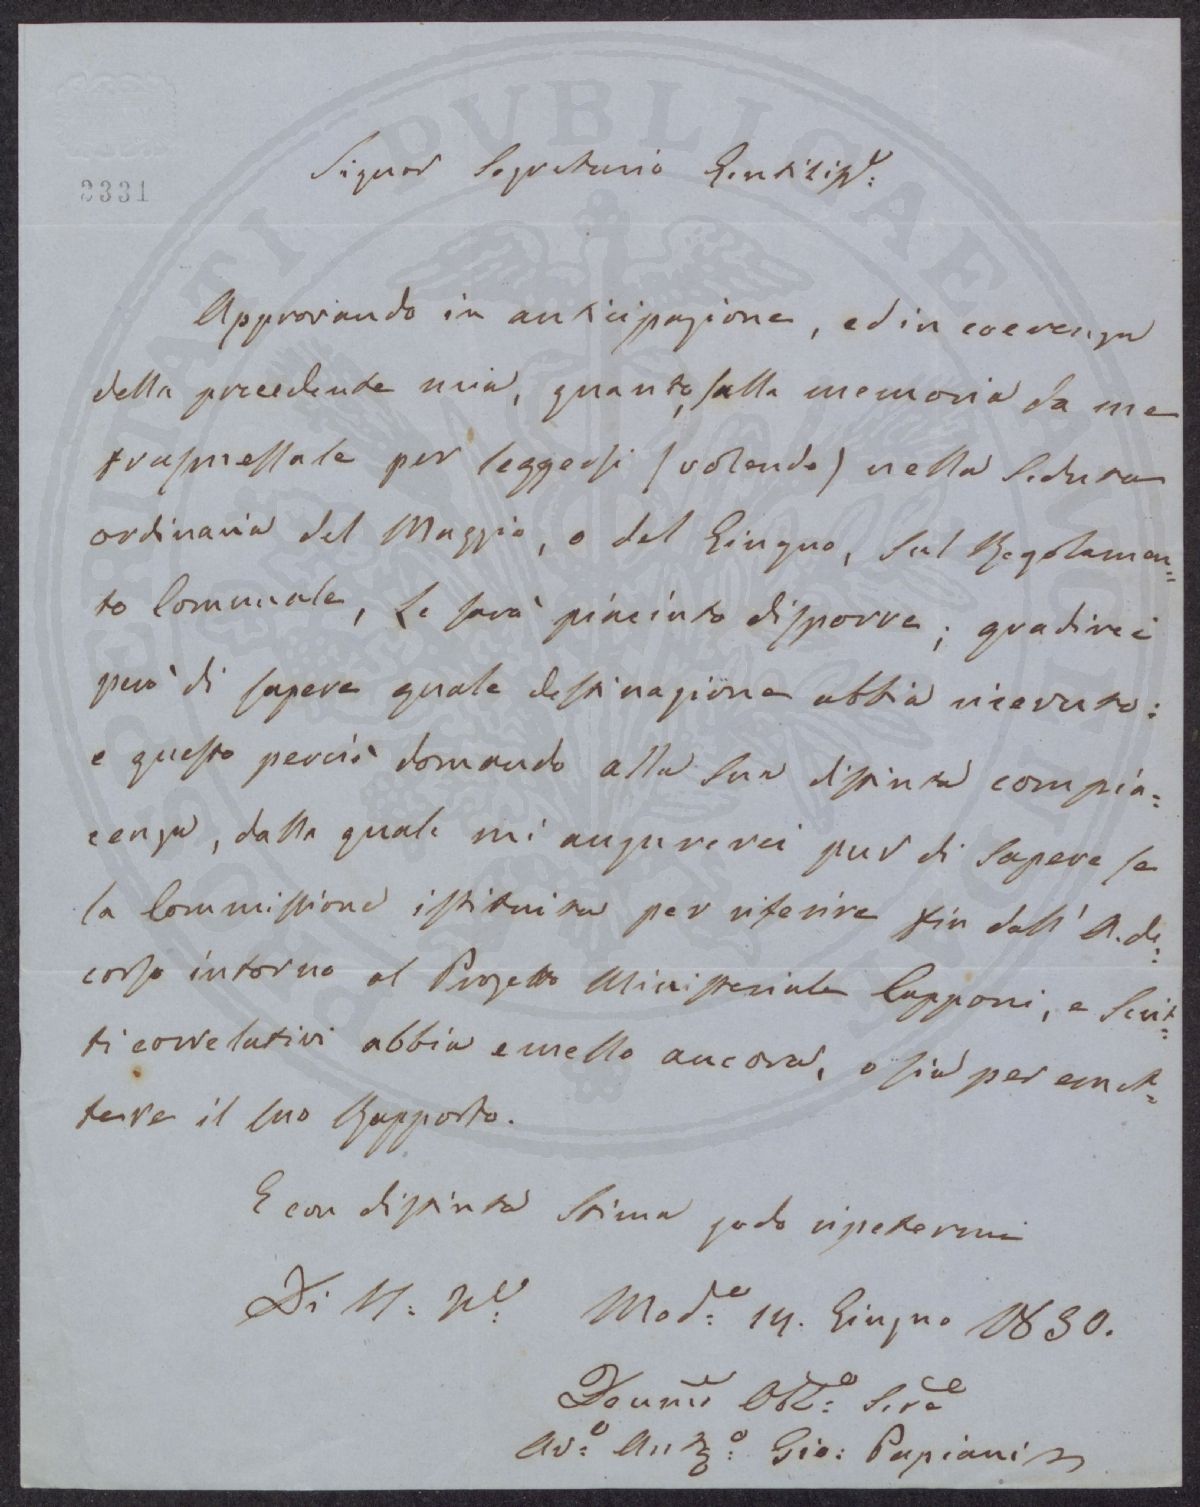 PROSPERITATI PVBLICAE AVGENDAE
2331
Signor Segretario Gentiliss:
Approvando in anticipazione, ed in coerenza
della precedente mia, quanto, sulla memoria da me
trasmessale per leggersi (volendo) nella Seduta
ordinaria del Maggio, o del Giugno, sul Regolamen=
to Comunale, Le sarà piaciuto disporre; gradirei
però di sapere quale destinazione abbia ricevuto:
e questo perciò domando alla Sua distinta compia=
cenza, dalla quale mi augurerei pur di sapere se
la Commissione istituita per riferire fin dall' A. de=
corso intorno al Progetto Ministeriale Capponi, e Scrit=
ti correlativi abbia emesso ancora, o sia per emet=
tere il suo Rapporto.
E con distinta stima godo ripetermi
Di
Mod: 14. Giugno 1850.
Devmo Obb: Serve
Av:o Ant:o Gio: Papiani